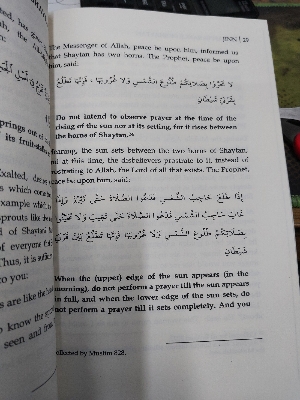 JINN | 29
The Messenger of Allah, peace be upon him, informed us
that Shaytan has two horns. The Prophet, peace be upon
him, said:
لَا تَحَرَّوْا بِصَلَاتِكُمْ طُلُوعَ الشَّمْسِ وَلَا غُرُوبَهَا ، فَإِنَّهَا تَطْلُعُ
بِقَرْنَيْ شَيْطَانٍ
Do not intend to observe prayer at the time of the
rising of the sun nor at its setting, for it rises between
the horns of Shaytan.
the sun sets between the two horns of Shaytan,
at this time, the disbelievers prostrate to it, instead of
prostrating to Allah, the Lord of all that exists. The Prophet,
peace be upon him, said:
إِذَا طَلَعَ حَاجِبُ الشَّمْسِ فَدَعُوا الصَّلَاةَ حَتَّى تَبْرُزَ وَإِذَا
غَابَ حَاجِبُ الشَّمْسِ فَدَعُوا الصَّلَاةَ حَتَّى تَغِيبَ وَلَا تَحَيَّنُوا
بِصَلَاتِكُمْ طُلُوعَ الشَّمْسِ وَلَا غُرُوبَهَا فَإِنَّهَا تَطْلُعُ بَيْنَ قَرْنَيْ
شَيْطَانٍ
When the (upper) edge of the sun appears (in the
morning), do not perform a prayer till the sun appears
in full, and when the lower edge of the sun sets, do
not perform a prayer till it sets completely. And you
collected by Muslim 828.
springs out of
its fruit-stalks
Exalted, des
s which come
example which
sprouts like
of Shaytan
of everyone
Thus, it is
to you:
s are like the
to know the
seen and